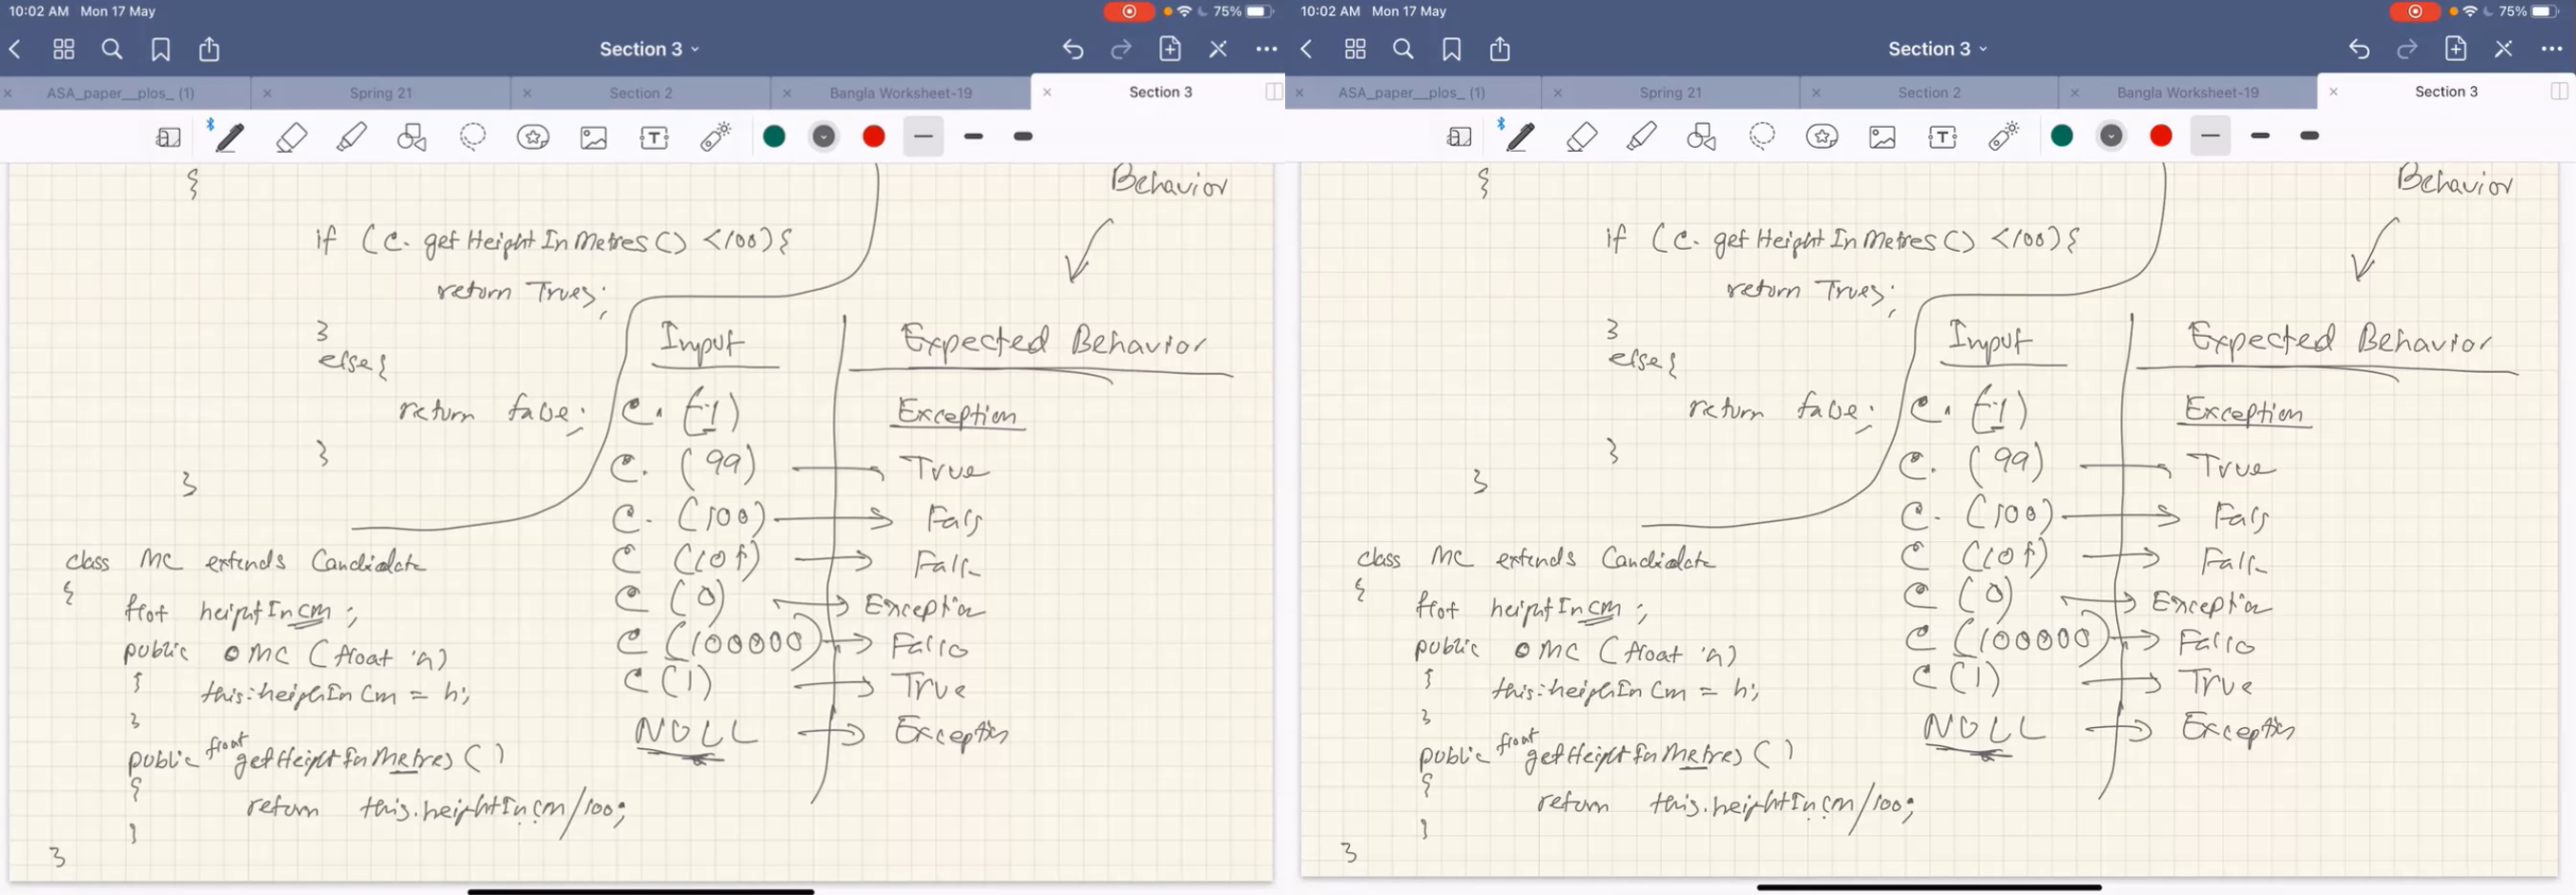 10:02 AM Mon 17 May
75%
Section 3
ASA_paper__plos_ (1)
Spring 21
Section 2
Bangla Worksheet-19
Section 3
Behavior
{
if (C. getHeightInMetres() <100){
return True;
}
else{
return false;
}
}
Input
Expected Behavior
C. (-1) Exception
C. (99) → True
C. (100) → Fals
C → Fals
C (0) → Exception
C (100000) → False
C (1) → True
NULL → Exception
class MC extends Candidate
{
float heightIncm ;
public MC (float h)
{
this.heighIn Cm = h;
}
public float getHeightInMetres ( )
{
return this.heightIncm/100;
}
}
10:02 AM Mon 17 May
75%
Section 3
ASA_paper__plos_ (1)
Spring 21
Section 2
Bangla Worksheet-19
Section 3
Behavior
{
if (C. getHeightInMetres() <100){
return True;
}
else{
return false;
}
}
Input
Expected Behavior
C. (-1) Exception
C. (99) → True
C. (100) → Fals
C → Fals
C (0) → Exception
C (100000) → False
C (1) → True
NULL → Exception
class MC extends Candidate
{
float heightIncm ;
public MC (float h)
{
this.heighIn Cm = h;
}
public float getHeightInMetres ( )
{
return this.heightIncm/100;
}
}